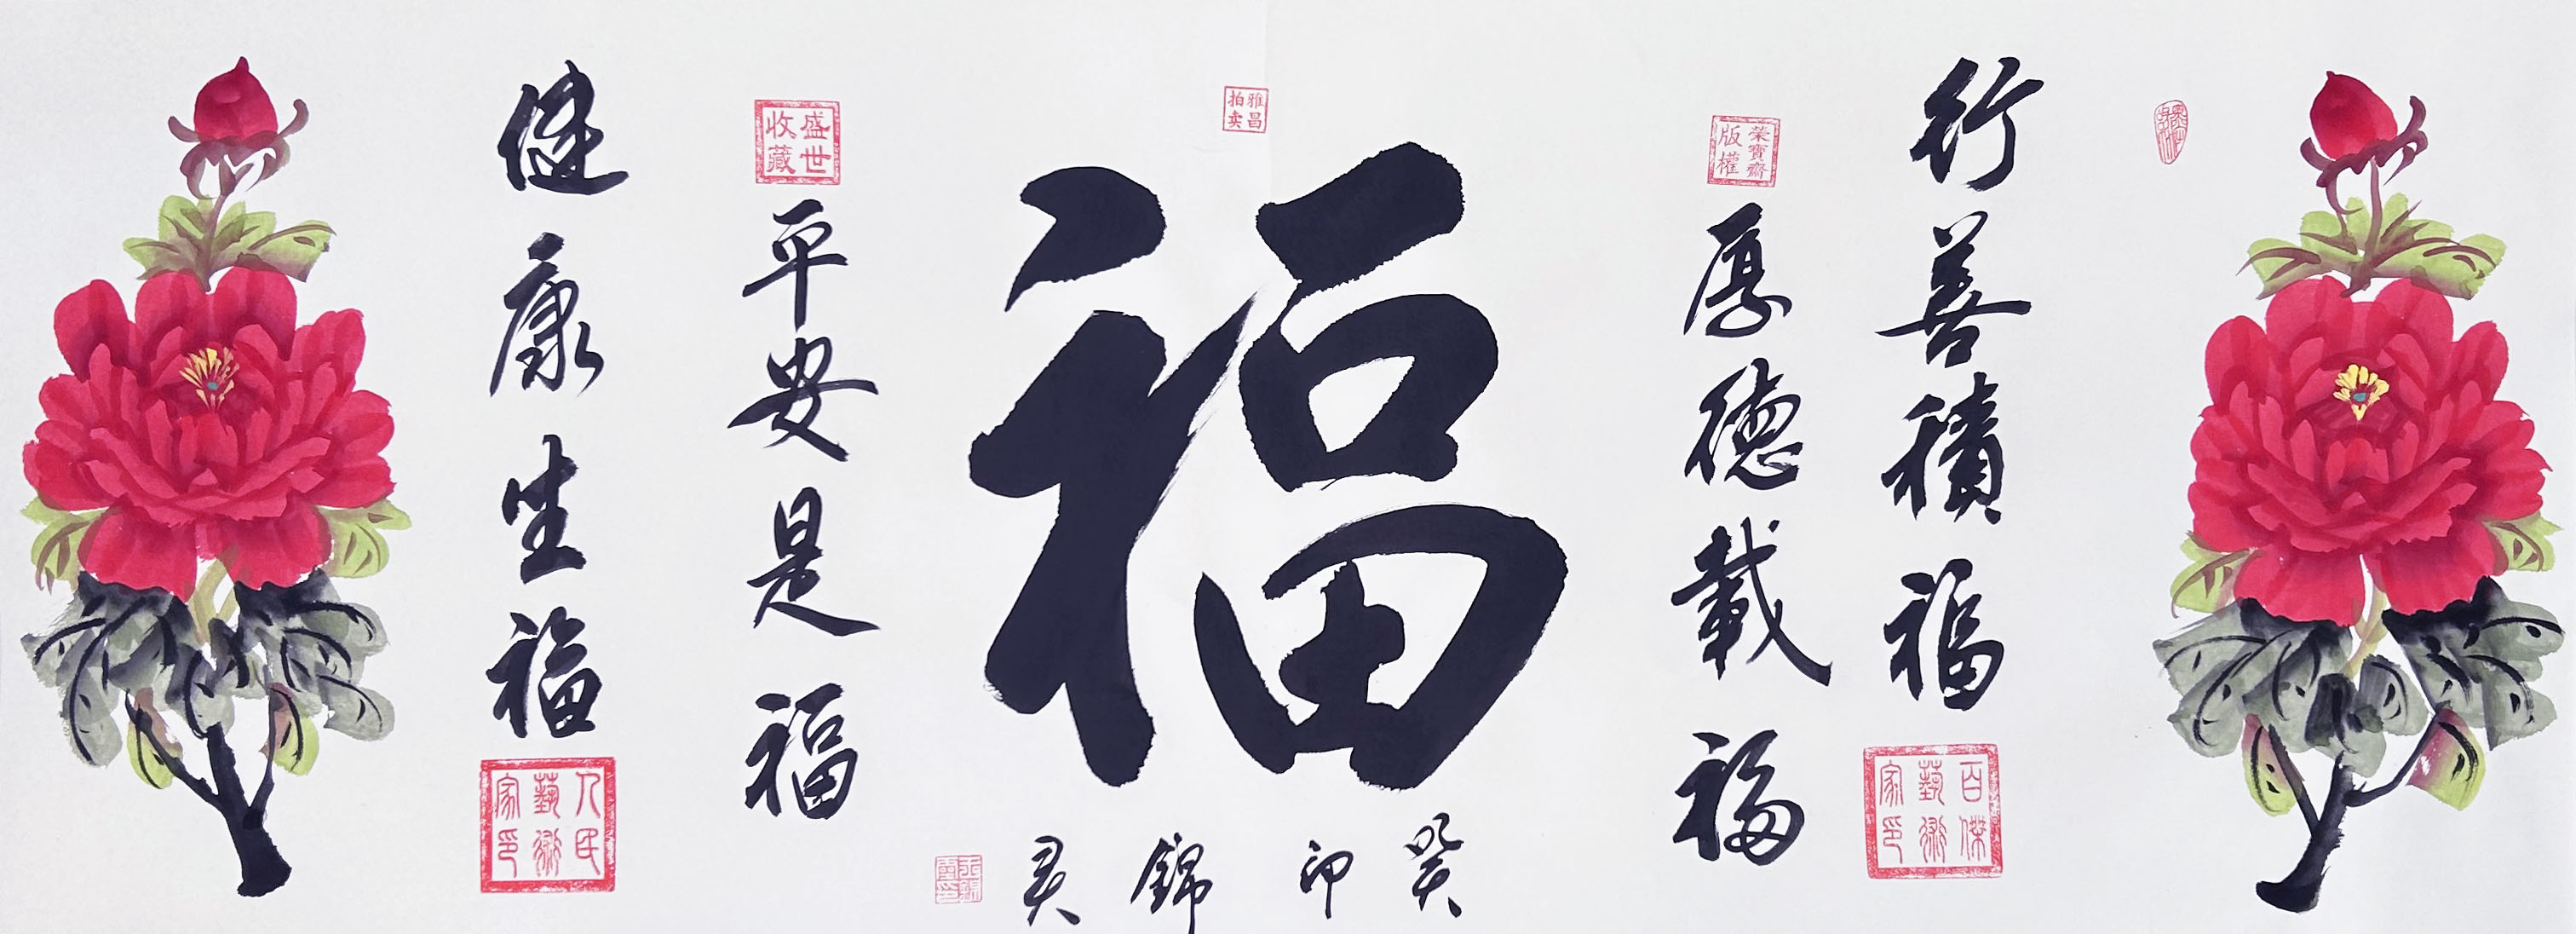 行善積福
厚德載福
福
平安是福
健康生福
癸卯
錦灵
榮寶齋版權
雅昌拍卖
盛世收藏
百傑藝術家印
人民藝術家印